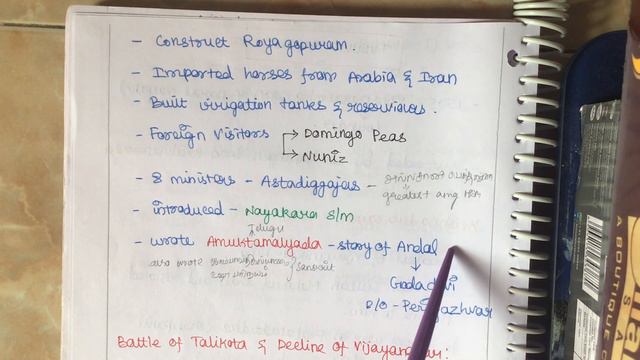 - Construct Royagopuram.
- Imported horses from Arabia & Iran
- Built irrigation tanks & reservious.
- Foreign Visitors → Domingo Peas
→ Nuniz
- 8 ministers - Astadiggajas -
greatest amg them
- introduced - Nayakara s/m
Telugu
- wrote Amuktamalyada - story of Andal
also wrote
Sanskrit
↓
D/O - Periyazhvar
Battle of Talikota & Decline of